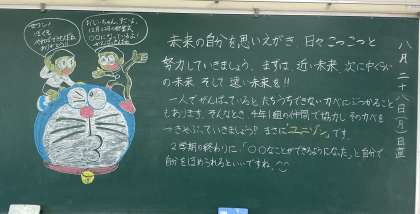 おじいちゃん、だよ。
未来の自分を思いえがき、日々こつこつと
努力していきましょう。まずは、近い未来、次に中くらい
の未来、そして遠い未来を!!
一人でがんばっていると、たちうちできないカベにぶつかること
もあります。そんなとき、今年1組の仲間で協力し、そのカベを
つきやぶっていきましょう!! まさに"ユニゾン"です。
2学期の終わりに、「〇〇なことができるようになった」と自分で
自分をほめられるといいですね。
八月二十八日(月)日直